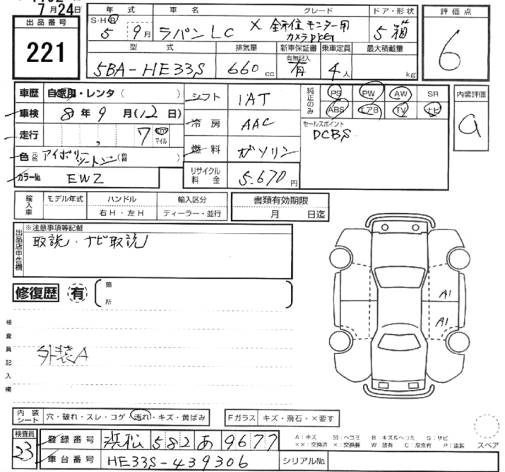 7月24日
出品番号
221
年式 車名 グレード ドア・形状 評価点
5年 9月 ラパンLC × 全方位モニター用カメラPKG 5 箱 6
型式 排気量 新車保証書 有無記入 乗車定員 最大積載量
5BA-HE33S 660cc 有 4人
車歴 自家用・レンタ シフト IAT
純正のみ PS PW AW SR
ABS エアB TV ナビ
内装評価
車検 8年9月(12日) 冷房 AAC
セールスポイント
DCBS
走行 7 マイル 燃料 ガソリン
色 元色 アイボリーツートン
リサイクル料金 5.670円
カラーNo. EWZ
輸入車 モデル年式 ハンドル 輸入区分 書類有効期限
年 右H・左H ディーラー・並行 月 日迄
出品店申告欄 ※注意事項等記載
取説・ナビ取説
修復歴 有 箇所
A1
A1
検査員記入欄
外装A
内装シート 穴・破れ・スレ・コゲ・汚れ・キズ・黄ばみ Fガラス キズ・飛石・×要す
検査員 23
登録番号 浜松 582 あ 9677
車台番号 HE33S-439306 シリアルNo.
スペア